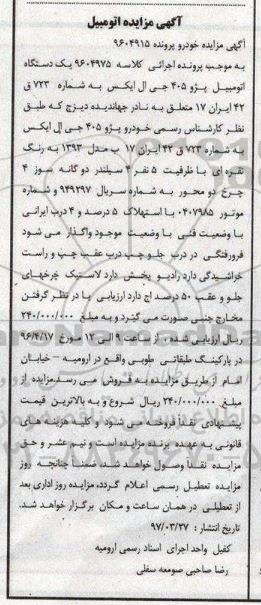 آگهی مزایده اتومبیل
آگهی مزایده خودرو پرونده ۹۶۰۴۹۱۵
به موجب پرونده اجرائی کلاسه ۹۶۰۴۹۷۵ یک دستگاه
اتومبیل پژو ۴۰۵ جی ال ایکس به شماره ۷۲۳ ق
۴۲ ایران ۱۷ متعلق به نادر جهاندیده دیزج که طبق
نظر کارشناس رسمی خودرو پژو ۴۰۵ جی ال ایکس
به شماره ۷۲۳ ق ۴۲ ایران ۱۷ ب مدل ۱۳۹۳ به رنگ
نقره ای با ظرفیت ۵ نفر ۴ سیلندر دو گانه سوز ۴
چرخ دو محور به شماره سریال ۹۴۹۲۹۷ و شماره
موتور ۰۴۰۷۹۸۵ با استهلاک ۵ درصد و ۴ درب ایرانی
با وضعیت فنی با وضعیت موجود واگذار می شود
فرورفتگی در درب جلو چپ درب عقب چپ و راست
خراشیدگی دارد رادیو پخش دارد لاستیک چرخهای
جلو و عقب ۵۰ درصد اج دارد ارزیابی با در نظر گرفتن
مخارج جنبی صورت می گیرد و به مبلغ ۲۴۰/۰۰۰/۰۰۰
ریال ارزیابی شده، از ساعت ۹ الی ۱۲ مورخ ۹۶/۴/۱۷
در پارکینگ طبقاتی طوبی واقع در ارومیه – خیابان
امام از طریق مزایده به فروش می رسد.مزایده از
مبلغ ۲۴۰/۰۰۰/۰۰۰ ریال شروع و به بالاترین قیمت
پیشنهادی نقداً فروخته می شود و کلیه هزینه های
قانونی به عهده برنده مزایده است و نیم عشر و حق
مزایده نقداً وصول خواهد شد، ضمناً چنانچه روز
مزایده تعطیل رسمی اعلام گردد، مزایده روز اداری بعد
از تعطیلی در همان ساعت و مکان برگزار خواهد شد.
تاریخ انتشار : ۹۷/۰۳/۲۷
کفیل واحد اجرای اسناد رسمی ارومیه
رضا صاحبی صومعه سفلی